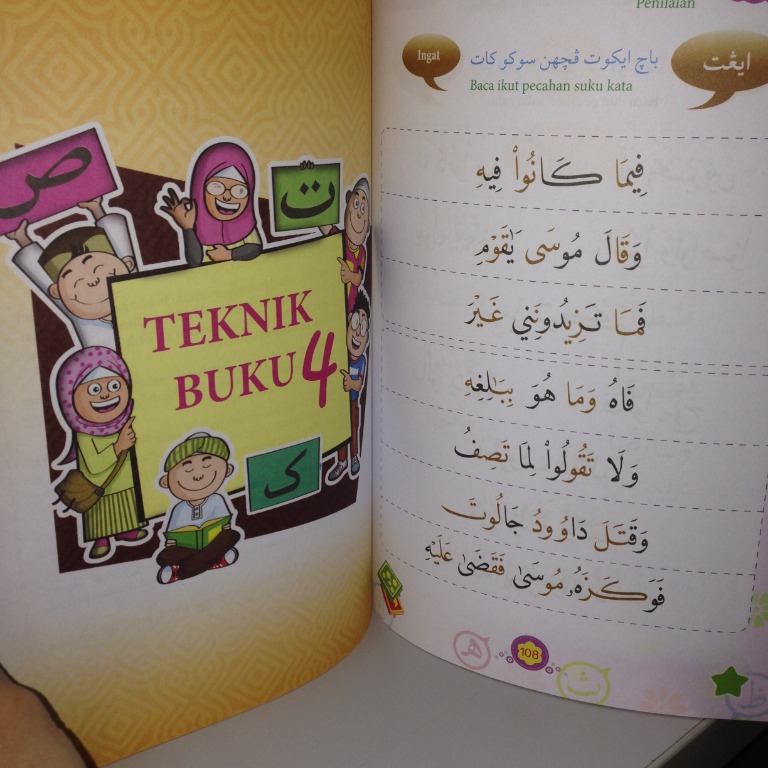 ص
ت
TEKNIK
BUKU 4
ک
Penilaian
Ingat
باچ ايكوت ڤچهن سوكو كات
ايڠت
Baca ikut pecahan suku kata
فِيمَا كَانُوا۟ فِيهِ
وَقَالَ مُوسَى يَٰقَوْمِ
فَمَا تَزِيدُونَنِي غَيْرَ
فَاهُ وَمَا هُوَ بِبَٰلِغِهِ
وَلَا تَقُولُوا۟ لِمَا تَصِفُ
وَقَتَلَ دَاوُودُ جَالُوتَ
فَوَكَزَهُۥ مُوسَىٰ فَقَضَىٰ عَلَيْهِ
108
ه
ث
ظ